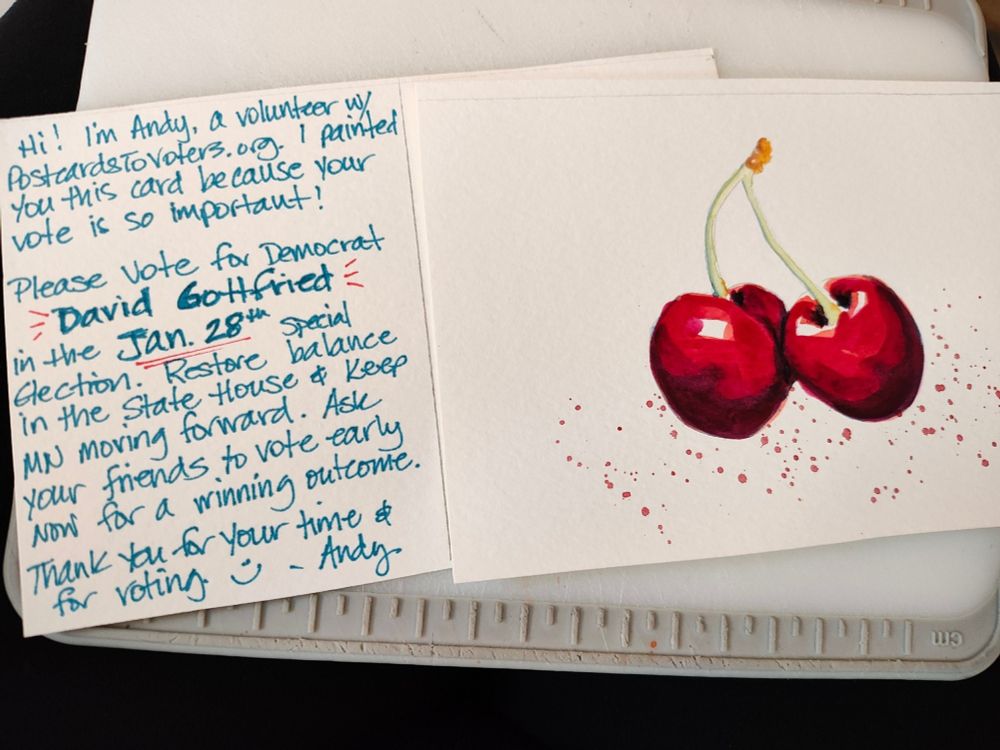 Hi! I'm Andy, a volunteer w/
PostcardsToVoters.org. I painted
you this card because your
vote is so important!
Please vote for Democrat
David Gottfried
in the Jan. 28th special
Election. Restore balance
in the State House & keep
MN moving forward. Ask
your friends to vote early
now for a winning outcome.
Thank you for your time &
for voting. - Andy
cm